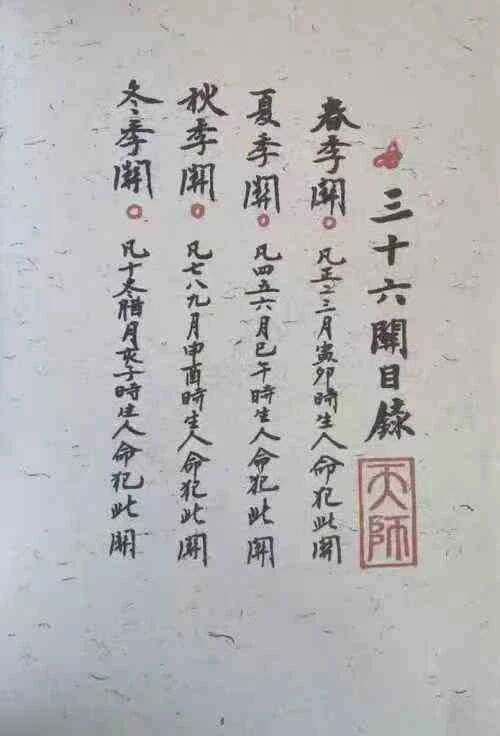 三十六關目錄
天師
春季關
凡正二三月寅卯時生人命犯此關
夏季關
凡四五六月巳午時生人命犯此關
秋季關
凡七八九月申酉時生人命犯此關
冬季關
凡十冬腊月亥子時生人命犯此關